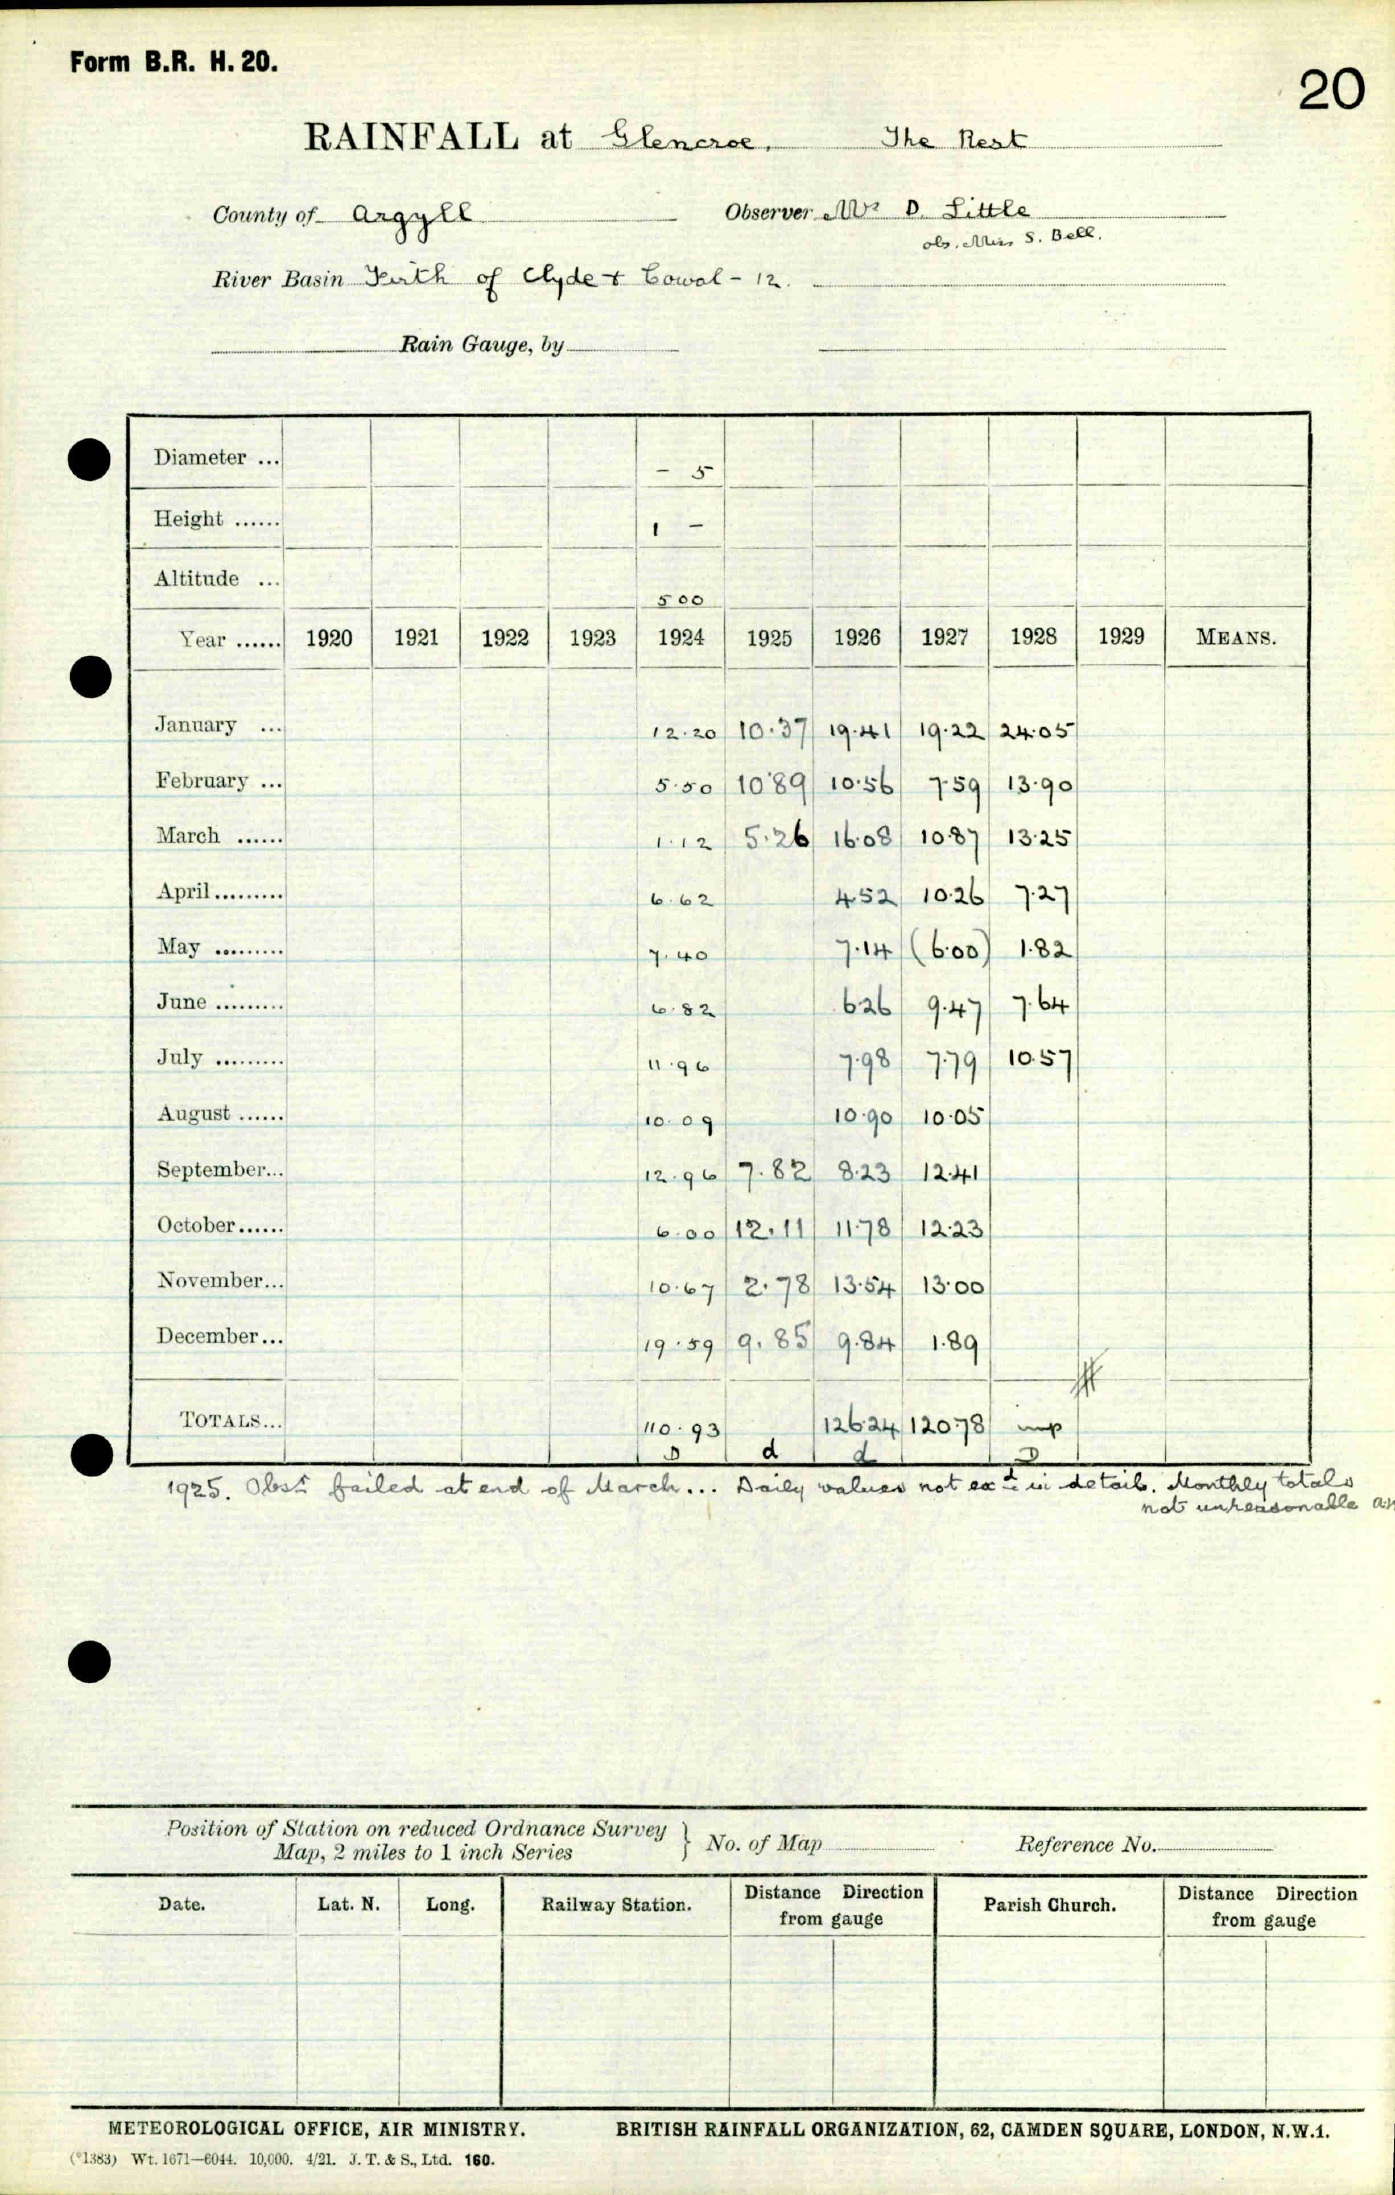 Form B.R. H. 20.
20
RAINFALL at Glencroe, The Rest
County of Argyll Observer Mrs D. Little
obs. Miss S. Bell.
River Basin Firth of Clyde + Cowal - 12.
Rain Gauge, by
Diameter ... - 5
Height ...... 1 -
Altitude ... 500
Year ...... 1920 1921 1922 1923 1924 1925 1926 1927 1928 1929 MEANS.
January ... 12.20 10.37 19.41 19.22 24.05
February ... 5.50 10.89 10.56 7.59 13.90
March ...... 1.12 5.26 16.08 10.87 13.25
April......... 6.62 4.52 10.26 7.27
May ......... 7.40 7.14 (6.00) 1.82
June ......... 6.82 6.26 9.47 7.64
July ......... 11.96 7.98 7.79 10.57
August ...... 10.09 10.90 10.05
September... 12.96 7.82 8.23 12.41
October...... 6.00 12.11 11.78 12.23
November... 10.67 2.78 13.54 13.00
December... 19.59 9.85 9.84 1.89
TOTALS... 110.93 126.24 120.78 imp
D d d D
1925. Obsr. failed at end of March... Daily values not exd in detail. Monthly totals
not unreasonable
Position of Station on reduced Ordnance Survey
Map, 2 miles to 1 inch Series } No. of Map Reference No.
Date. Lat. N. Long. Railway Station. Distance Direction from gauge Parish Church. Distance Direction from gauge
METEOROLOGICAL OFFICE, AIR MINISTRY. BRITISH RAINFALL ORGANIZATION, 62, CAMDEN SQUARE, LONDON, N.W.1.
(*1383) Wt. 1671—6044. 10,000. 4/21. J. T. & S., Ltd. 160.